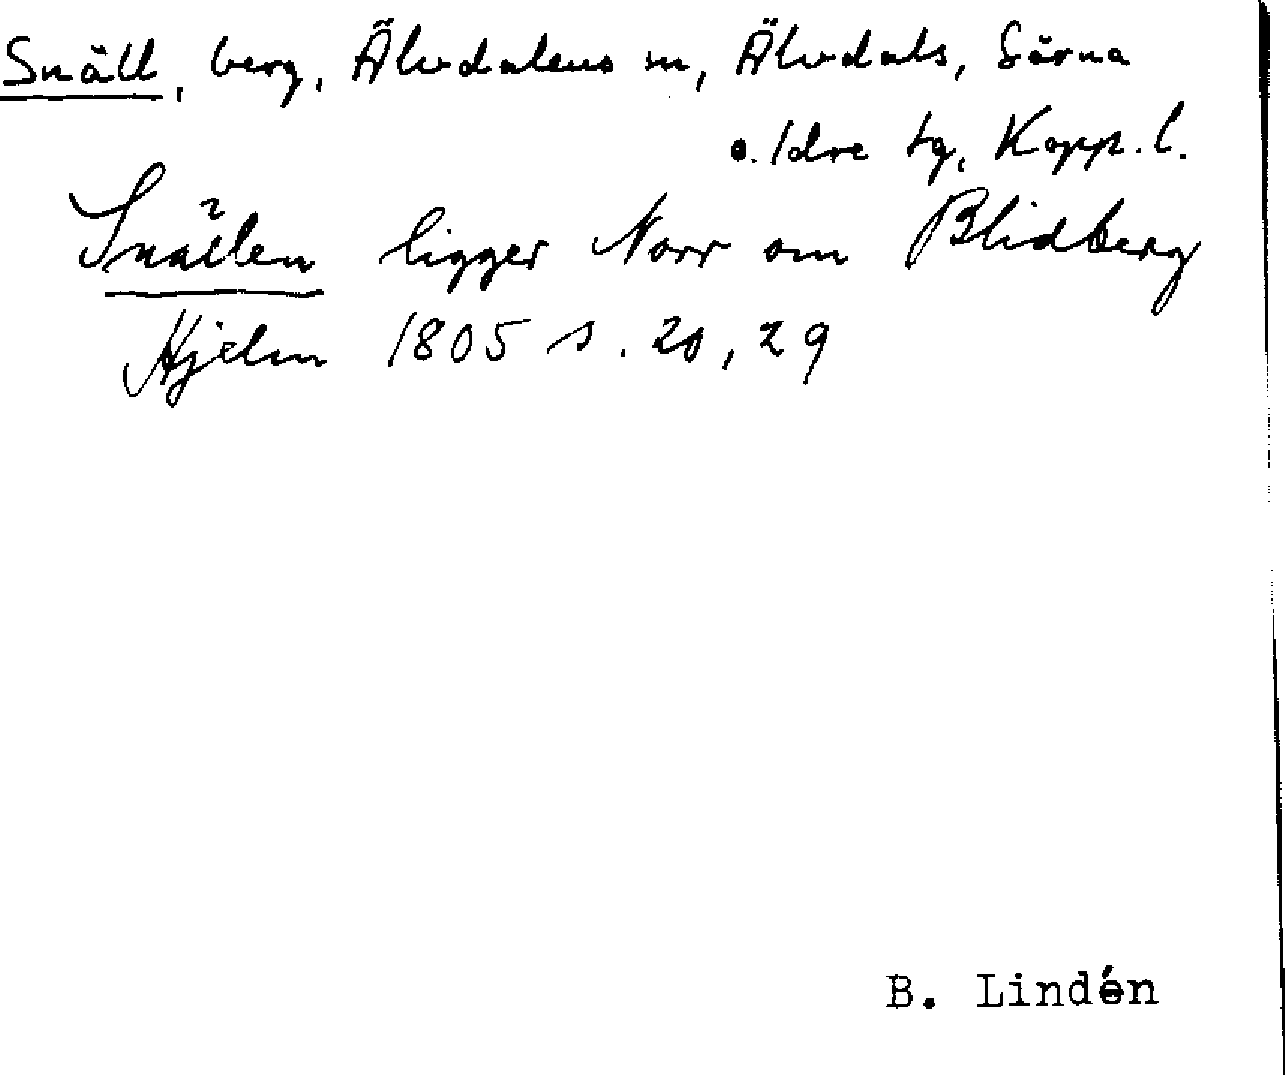 Snäll, berg, Älvdalens sn, Älvdals, Särna
o. Idre tg, Kopp. l.
Snällen ligger Norr om Blidberg
Hjelm 1805 s. 20, 29
B. Lindén